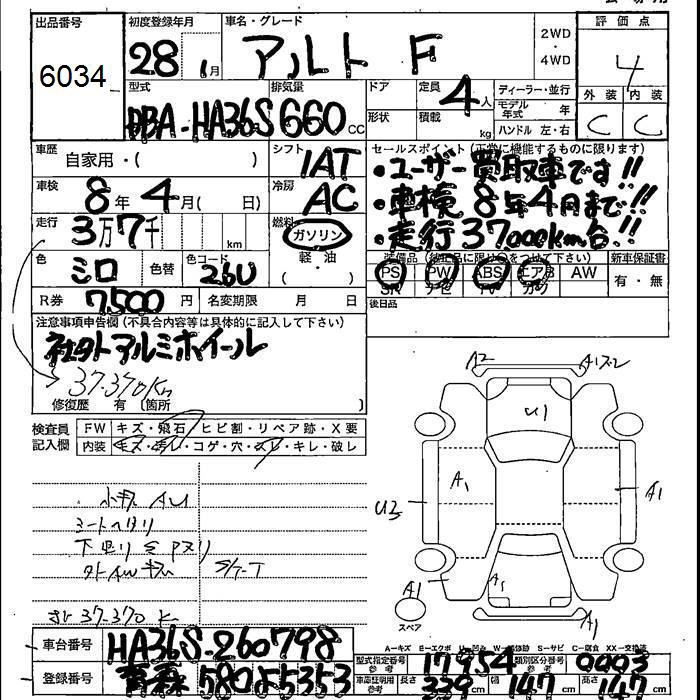 出品番号 初度登録年月 車名・グレード 評価点
6034 28年1月 アルト F 2WD・4WD 4
型式 排気量 ドア 定員 ディーラー・並行 外装 内装
DBA-HA36S 660cc 4人 モデル年式 年 C C
形状 積載 kg ハンドル 左・右
車歴 自家用・( ) シフト 1AT セールスポイント(正常に機能するものに限ります)
・ユーザー買取車です!!
車検 8年4月( 日) 冷房 AC
・車検8年4月まで!!
走行 3万7千 km 燃料 ガソリン 軽・油 ( )
・走行37000km台!!
色 シロ 色替 色コード 26U
装備品(純正品に限り○をつけて下さい) 新車保証書
PS PW ABS エアB AW 有・無
SR ナビ TV カワ
R券 7,500円 名変期限 月 日 後日品
注意事項申告欄(不具合内容等は具体的に記入して下さい)
社外アルミホイール
37,370Km
修復歴 有 〔箇所 〕
検査員記入欄 FW キズ・飛石・ヒビ割・リペア跡・X要
内装 キズ・汚レ・コゲ・穴・スレ・キレ・破レ
A2 A1×2
U1
A1
U3 A1
A1 スペア A1
小キズ AU
シートヘタリ
下回り
S/T-T
37,370 k
A-キズ E-エクボ U-凹み S-サビ C-腐食 XX-交換済
車台番号 HA36S-260798
型式指定番号 参考 17954 類別区分番号 参考 0003
登録番号 青森 580 よ 5353
車庫証明用 参考 長さ 339cm 幅 147cm 高さ 147cm